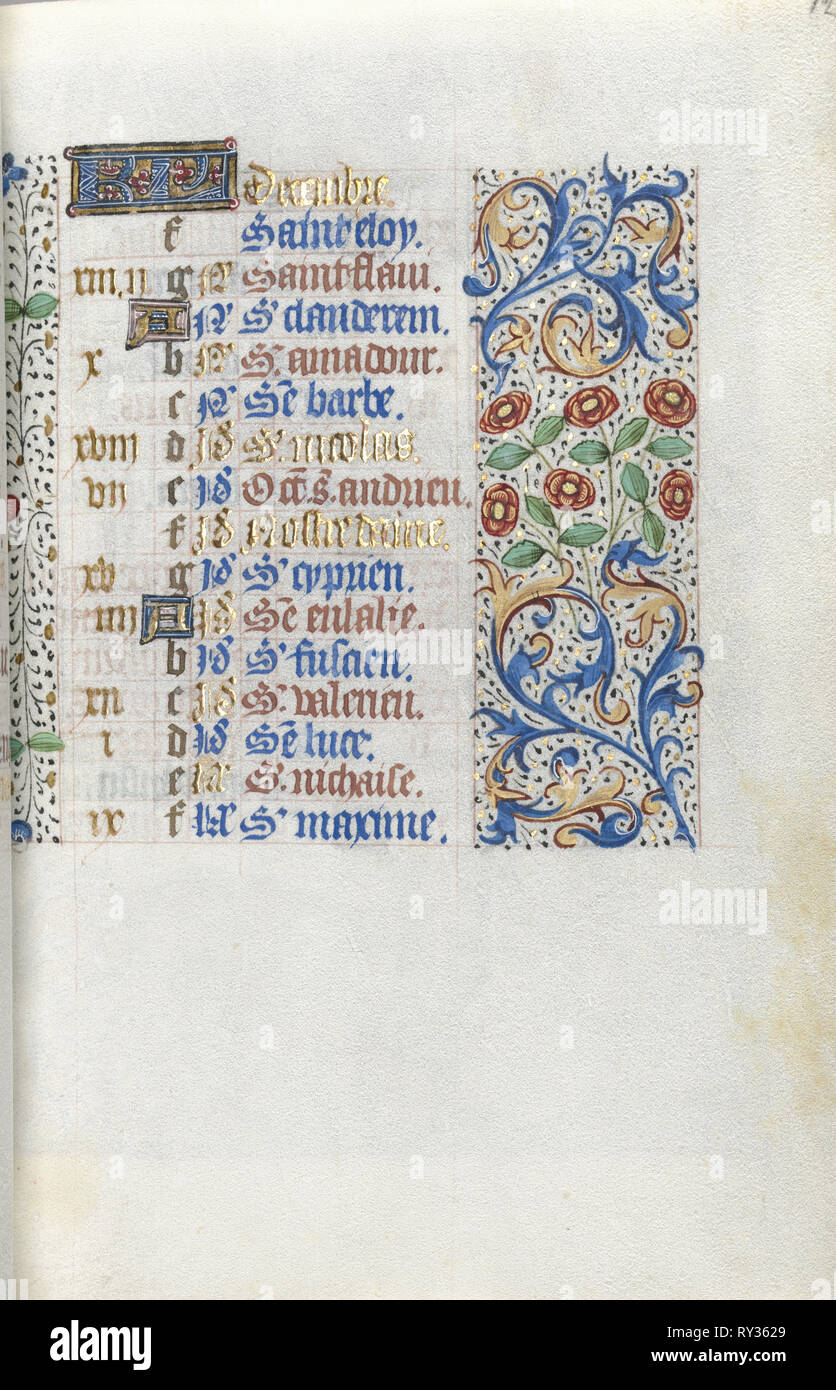 12
KL Decembre.
f Saint eloy.
xiii. ii g N Saint flavi.
A N S' clauderem.
x b N S'. amadour.
c N Sē barbe.
xviii d Id S'. nicolas.
vii e Id Oct. s. andrieu.
f Id Nostre dame.
xv g Id S' cyprien.
iiii A Id Sē eulalie.
b Id S' fuscien.
xii c Id S'. valerieu.
i d Id Sē luce.
e S'. nichaise.
ix f KL S' maxime.
alamy
Image ID: RY3629
www.alamy.com